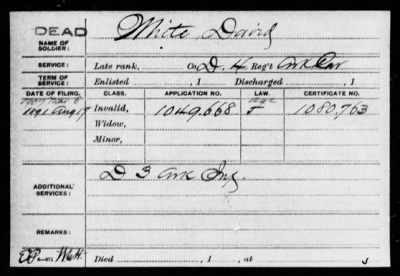 DEAD
NAME OF SOLDIER: Mitt David
SERVICE: Late rank, Co. D. 4 Reg't Ark Cav
TERM OF SERVICE: Enlisted , 1 Discharged , 1
DATE OF FILING. CLASS. APPLICATION NO. LAW. CERTIFICATE NO.
1891 Aug 17 Invalid, 1049.668 J 1080.763
Widow,
Minor,
ADDITIONAL SERVICES: D 3 Ark Inf.
REMARKS:
Died , 1 , at